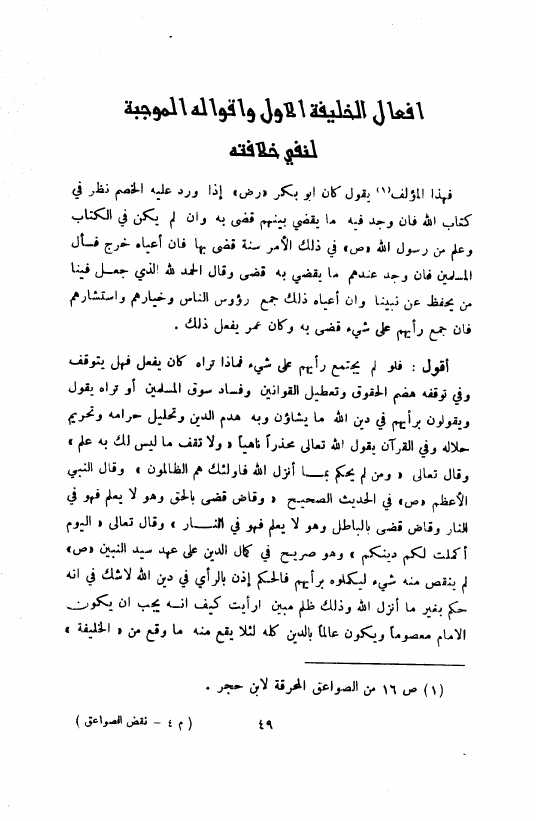 افعال الخليفة الاول واقواله الموجبة
لنفي خلافته
فهذا المؤلف (١) يقول كان ابو بكر «رض» إذا ورد عليه الخصم نظر في
كتاب الله فان وجد فيه ما يقضي بينهم قضى به وان لم يكن في الكتاب
وعلم من رسول الله «ص» في ذلك الأمر سنة قضى بها فان أعياه خرج فسأل
المسلمين فان وجد عندهم ما يقضي به قضى وقال الحمد لله الذي جعل فينا
من يحفظ عن نبينا وان أعياه ذلك جمع رؤوس الناس وخيارهم واستشارهم
فان جمع رأيهم على شيء قضى به وكان عمر يفعل ذلك .
أقول : فلو لم يجتمع رأيهم على شيء فماذا تراه كان يفعل فهل يتوقف
وفي توقفه هضم الحقوق وتعطيل القوانين وفساد سوق المسلمين أو تراه يقول
ويقولون برأيهم في دين الله ما يشاؤن وبه هدم الدين وتحليل حرامه وتحريم
حلاله وفي القرآن يقول الله تعالى محذراً ناهياً « ولا تقف ما ليس لك به علم »
وقال تعالى « ومن لم يحكم بمـا أنزل الله فاولئك هم الظالمون » وقال النبي
الأعظم «ص» في الحديث الصحيح « وقاض قضى بالحق وهو لا يعلم فهو في
النار وقاض قضى بالباطل وهو لا يعلم فهو في النـــار » وقال تعالى « اليوم
أكملت لكم دينكم » وهو صريح في كمال الدين على عهد سيد النبيين «ص»
لم ينقص منه شيء ليكملوه برأيهم فالحكم إذن بالرأي في دين الله لاشك في انه
حكم بغير ما أنزل الله وذلك ظلم مبين ارأيت كيف انــه يجب ان يكون
الامام معصوماً ويكون عالماً بالدين كله لئلا يقع منه ما وقع من « الخليفة »
(١) ص ١٦ من الصواعق المحرقة لابن حجر .
٤٩ ( م ٤ – نقض الصواعق )